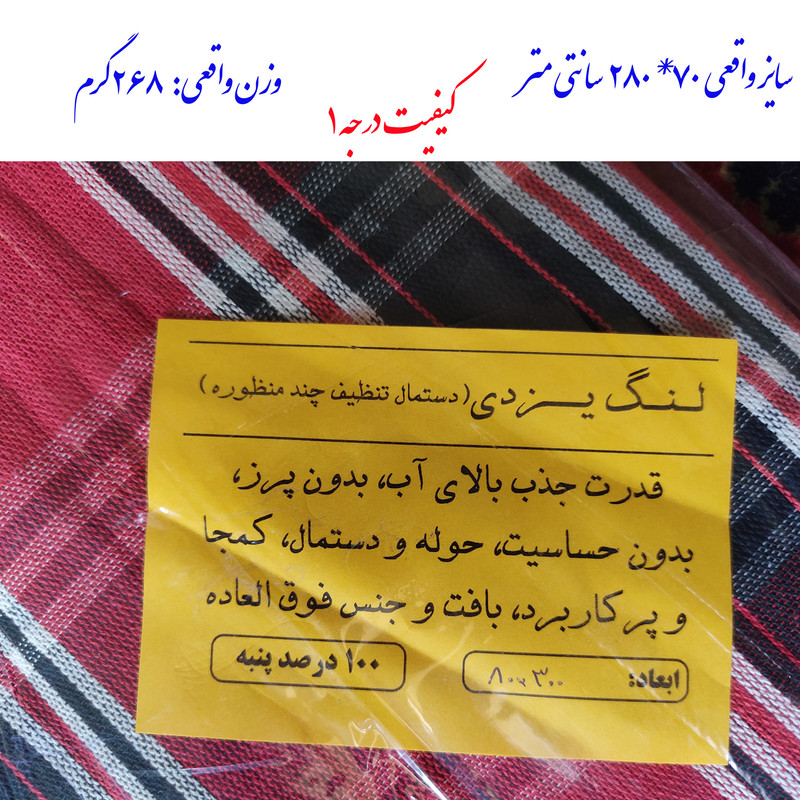 سایز واقعی ۷۰* ۲۸۰ سانتی متر
وزن واقعی: ۲۶۸ گرم
کیفیت درجه ۱
لنگ یزدی (دستمال تنظیف چند منظوره)
قدرت جذب بالای آب، بدون پرز،
بدون حساسیت، حوله و دستمال، کمجا
و پر کاربرد، بافت و جنس فوق العاده
ابعاد: ۸۰x۳۰۰
۱۰۰ درصد پنبه